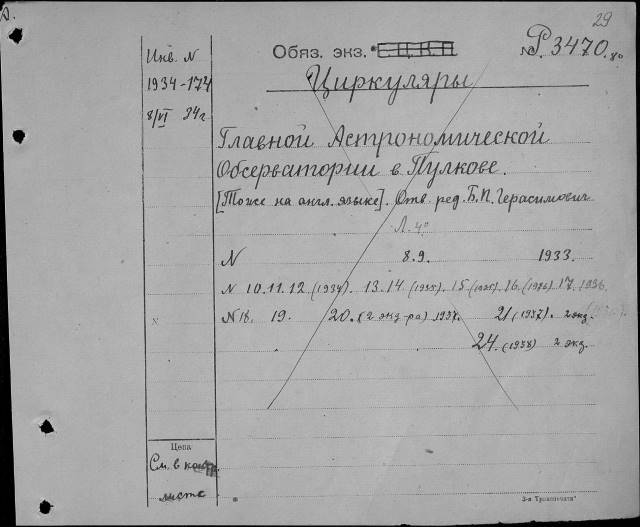 29
Инв. N
1934-174
8/VI 34г
Обяз. экз. Е.Ц.К.П
№ Р.3470.80
Циркуляры
Главной Астрономической
Обсерватории в Пулкове.
[Тоже на англ. языке]. Отв. ред. Б.П. Герасимович
Л. 4°
N 8.9. 1933.
N 10.11.12 (1934). 13.14 (1935). 15 (1935). 16. (1936) 17. 1936.
N 18. 19. 20. (2 экз-ра) 1937. 21 (1937). 2 экз.
24. (1938) 2 экз.
Цена
См. в
листе
3-я "Транспечати"